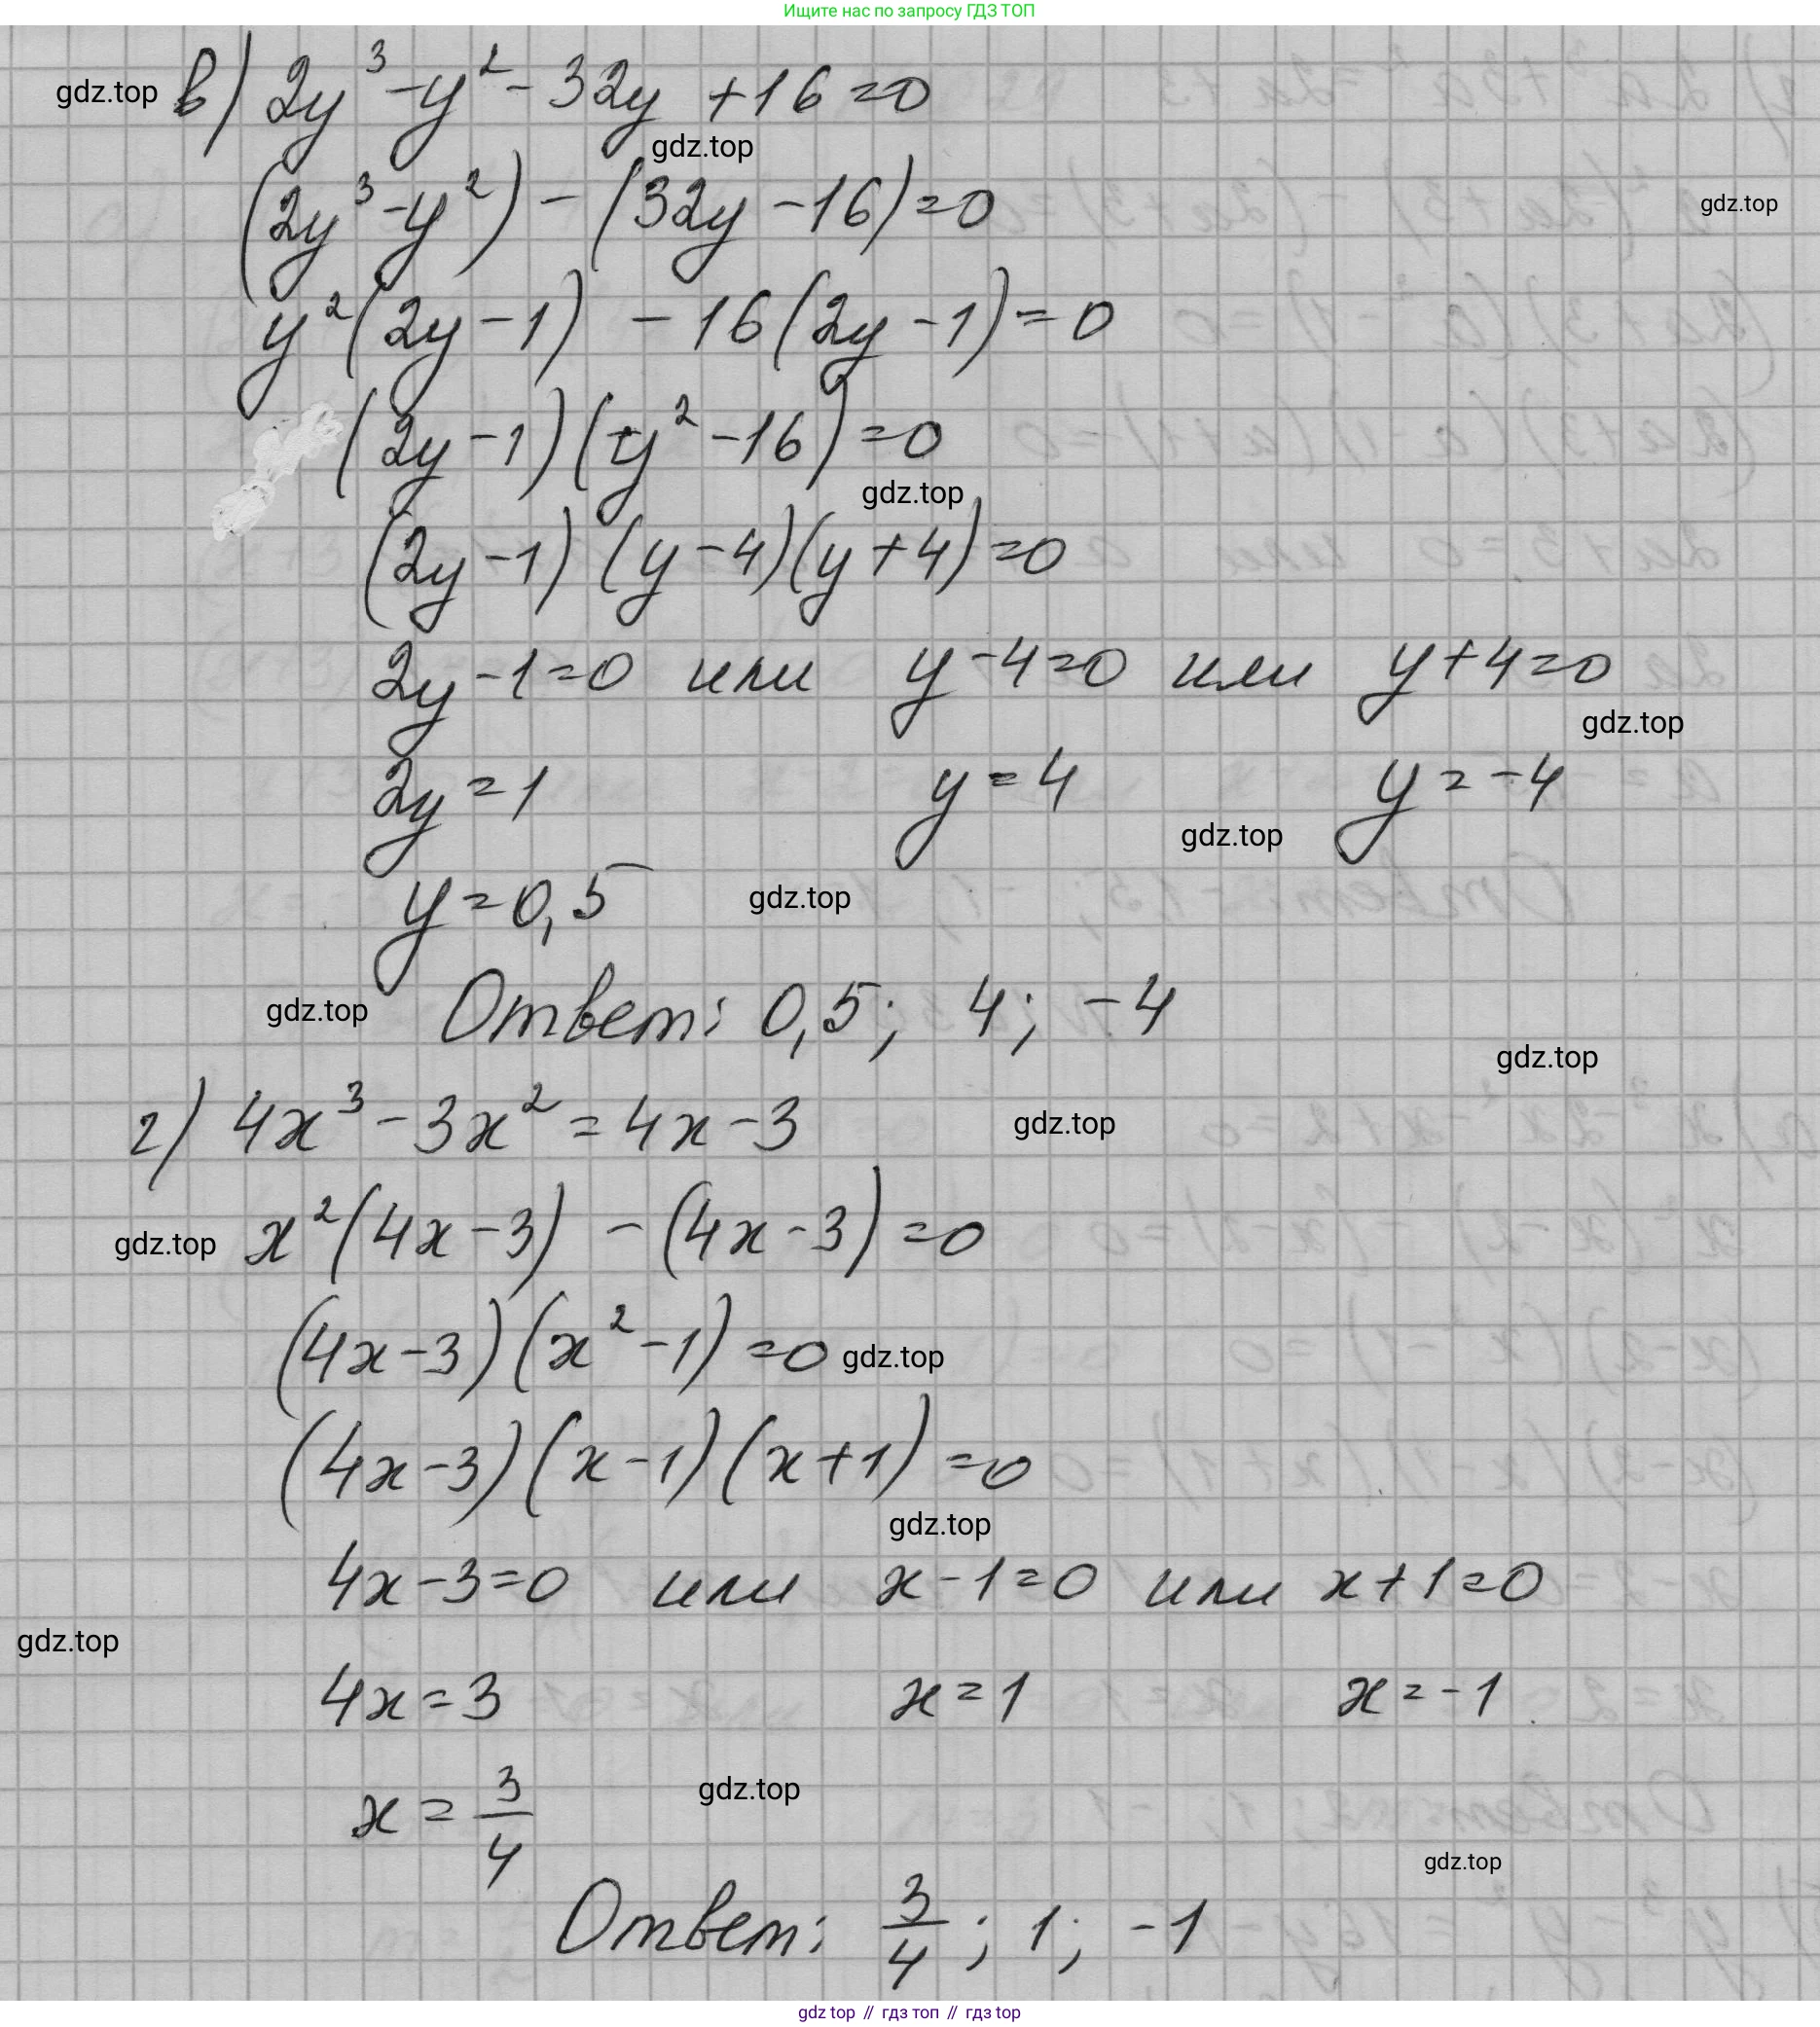 Ищите нас по запросу ГДЗ ТОП
gdz.top в) 2y³ - y² - 32y + 16 = 0
gdz.top
(2y³ - y²) - (32y - 16) = 0
gdz.top
y²(2y - 1) - 16(2y - 1) = 0
(2y - 1)(y² - 16) = 0
gdz.top
(2y - 1)(y - 4)(y + 4) = 0
2y - 1 = 0 или y - 4 = 0 или y + 4 = 0
gdz.top
2y = 1 y = 4 y = -4
gdz.top
y = 0,5 gdz.top
gdz.top Ответ: 0,5; 4; -4
gdz.top
г) 4x³ - 3x² = 4x - 3 gdz.top
gdz.top x²(4x - 3) - (4x - 3) = 0
(4x - 3)(x² - 1) = 0 gdz.top
(4x - 3)(x - 1)(x + 1) = 0
gdz.top
4x - 3 = 0 или x - 1 = 0 или x + 1 = 0
gdz.top
4x = 3 x = 1 x = -1
x = 3/4 gdz.top
gdz.top
Ответ: 3/4; 1; -1
gdz top // гдз топ // gdz top